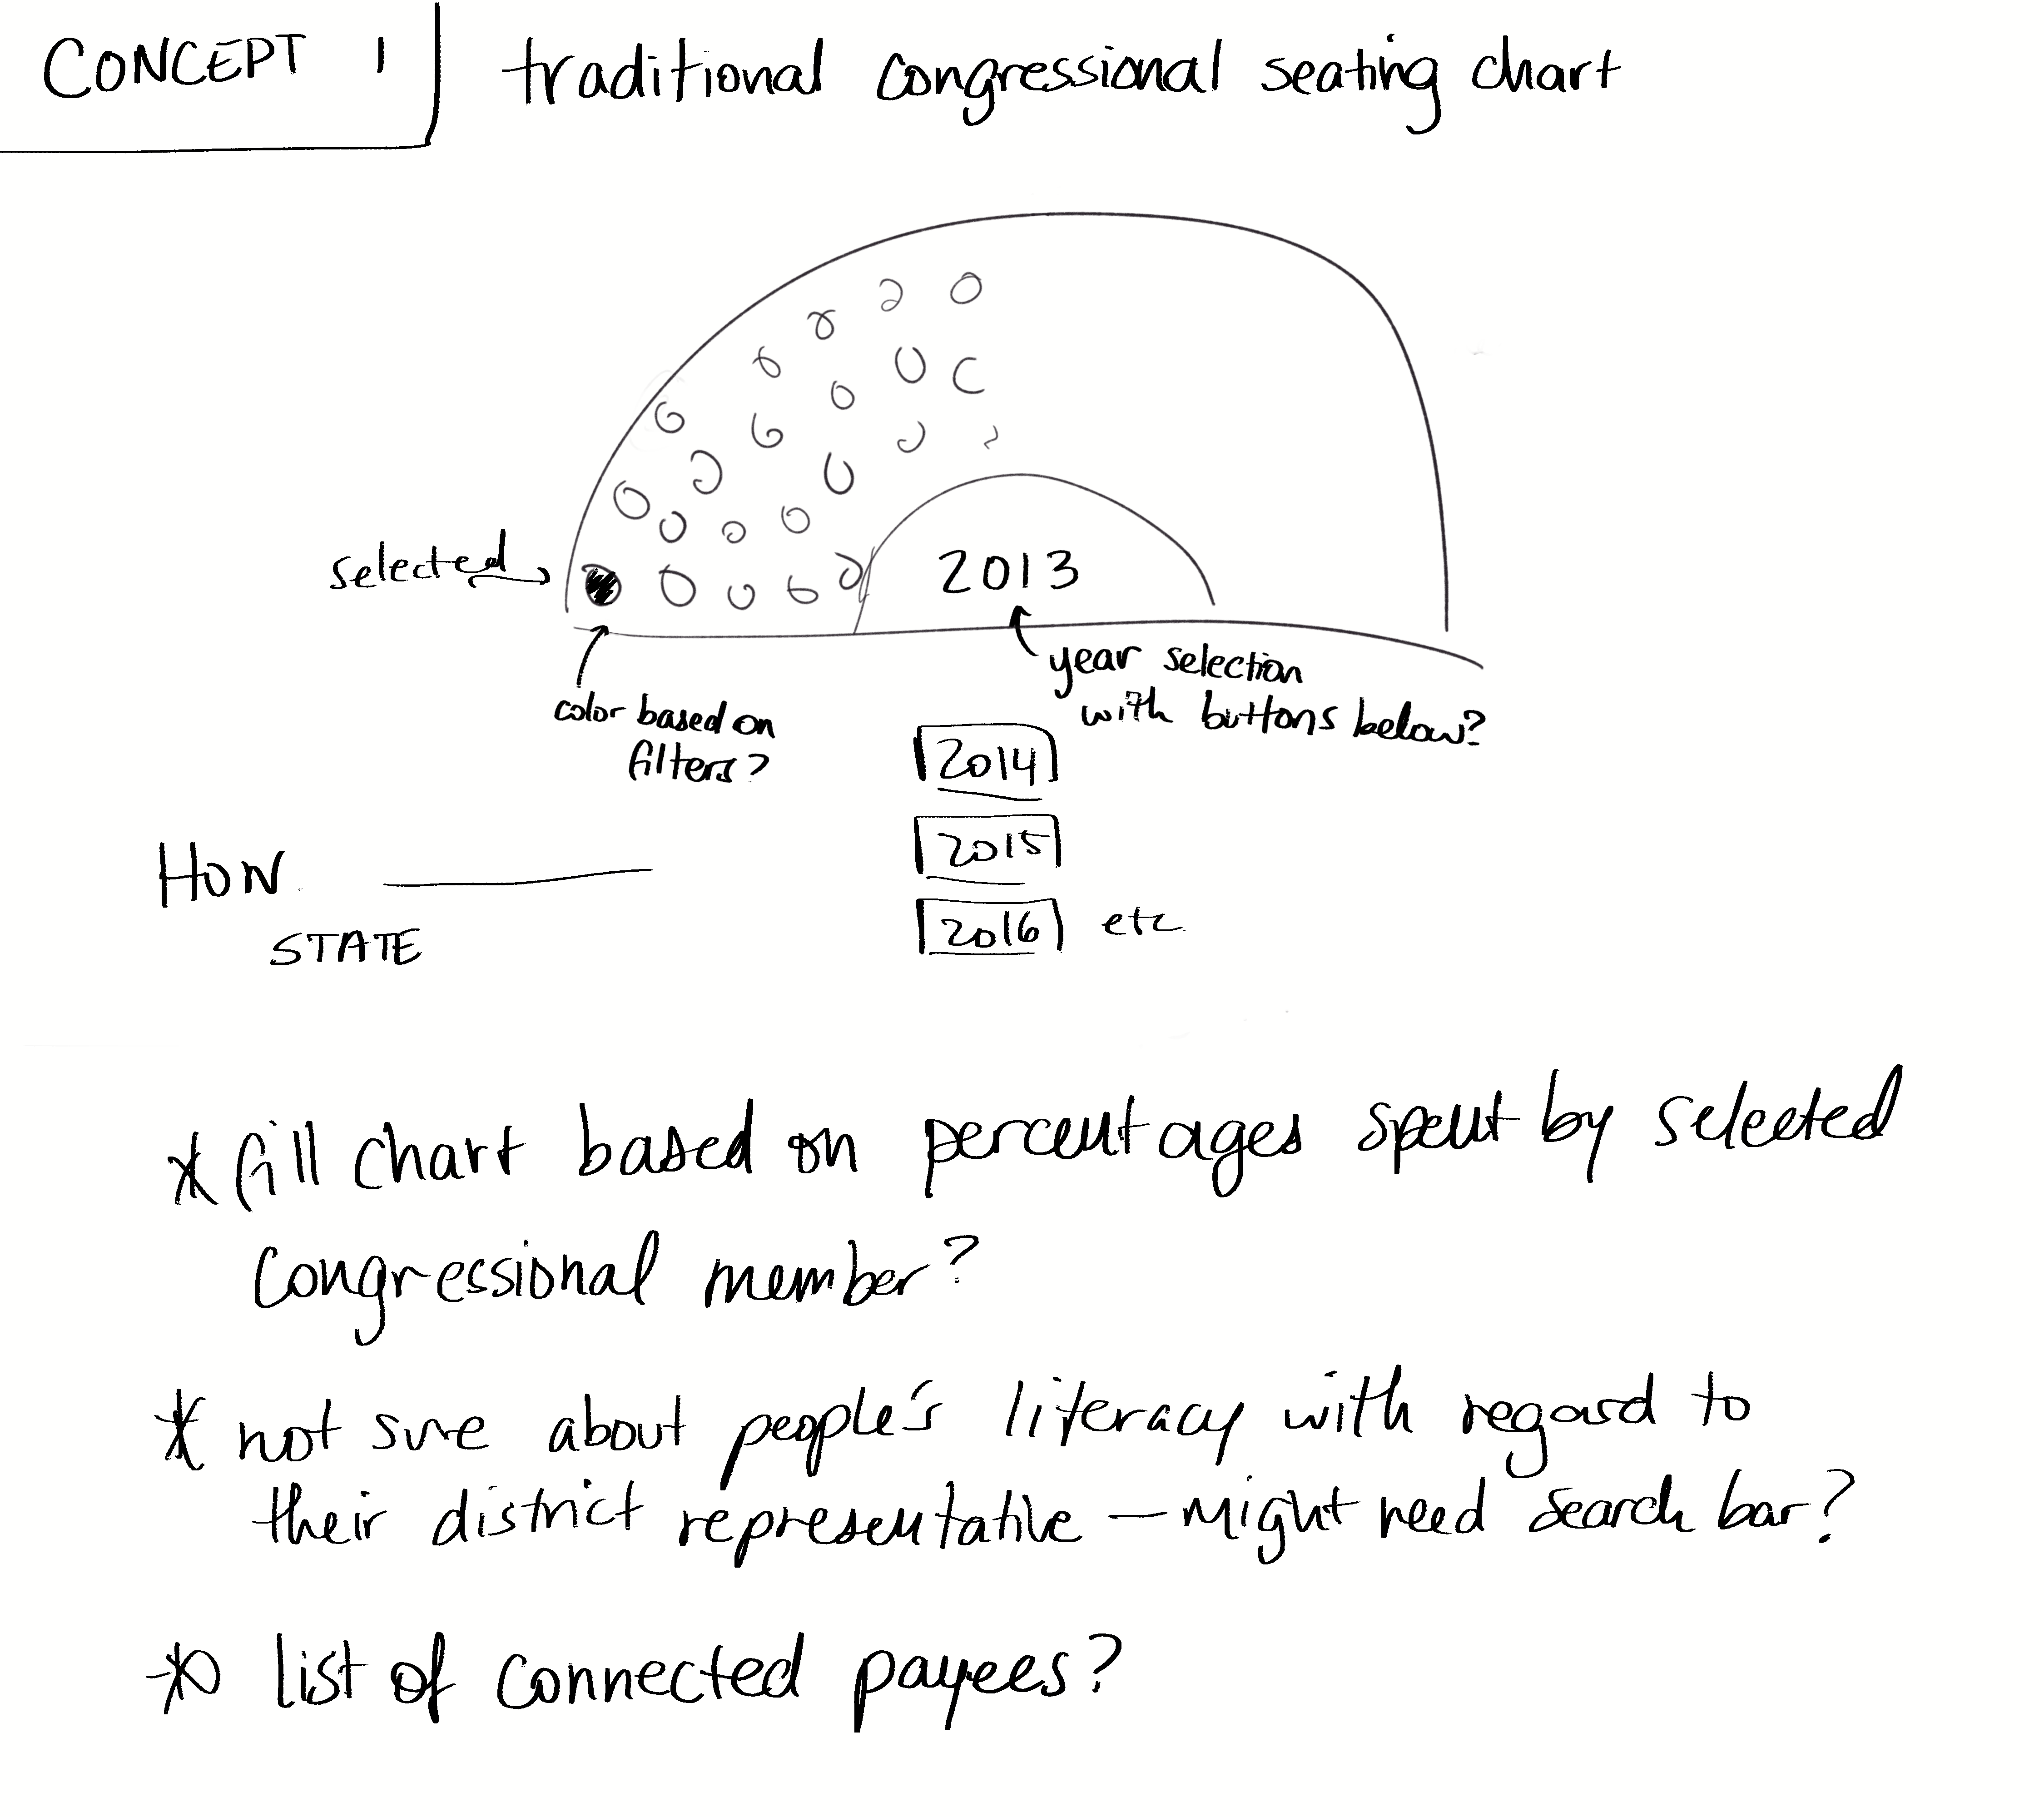 CONCEPT 1
traditional congressional seating chart
selected
2013
color based on
filters?
year selection
with buttons below?
2014
2015
2016 etc.
HON.
STATE
* fill chart based on percentages spent by selected
congressional member?
* not sure about people's literacy with regard to
their district representative – might need search bar?
* list of connected payees?